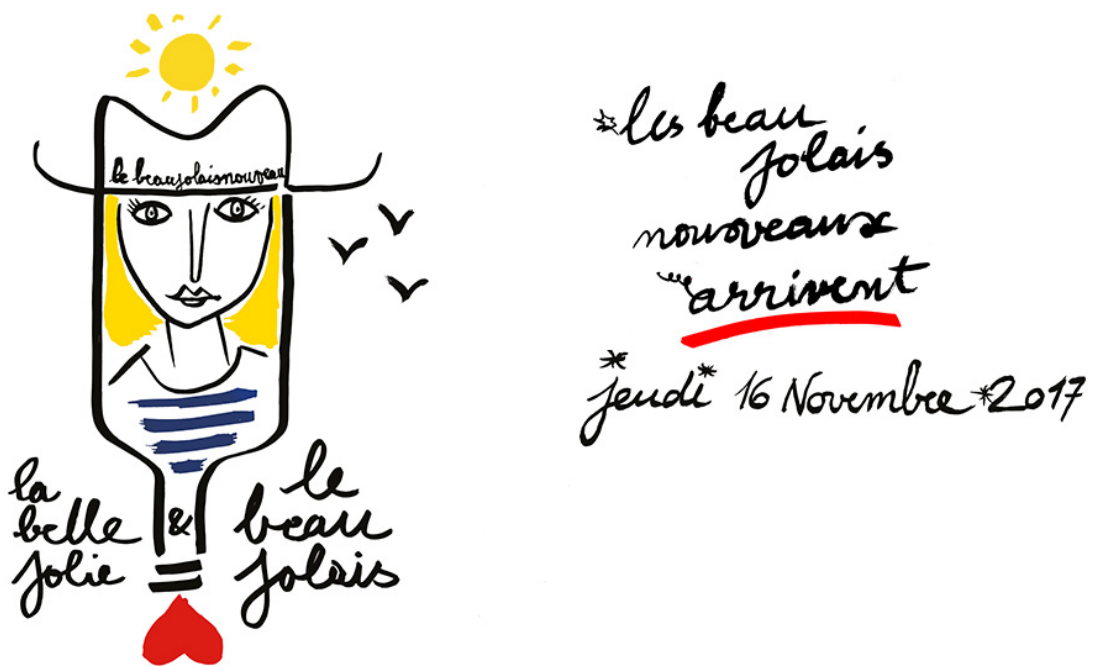 le beaujolaisnouveau
la
belle
jolie
&
le
beau
jolais
*les beau
jolais
nouveaux
arrivent
jeudi 16 Novembre *2017